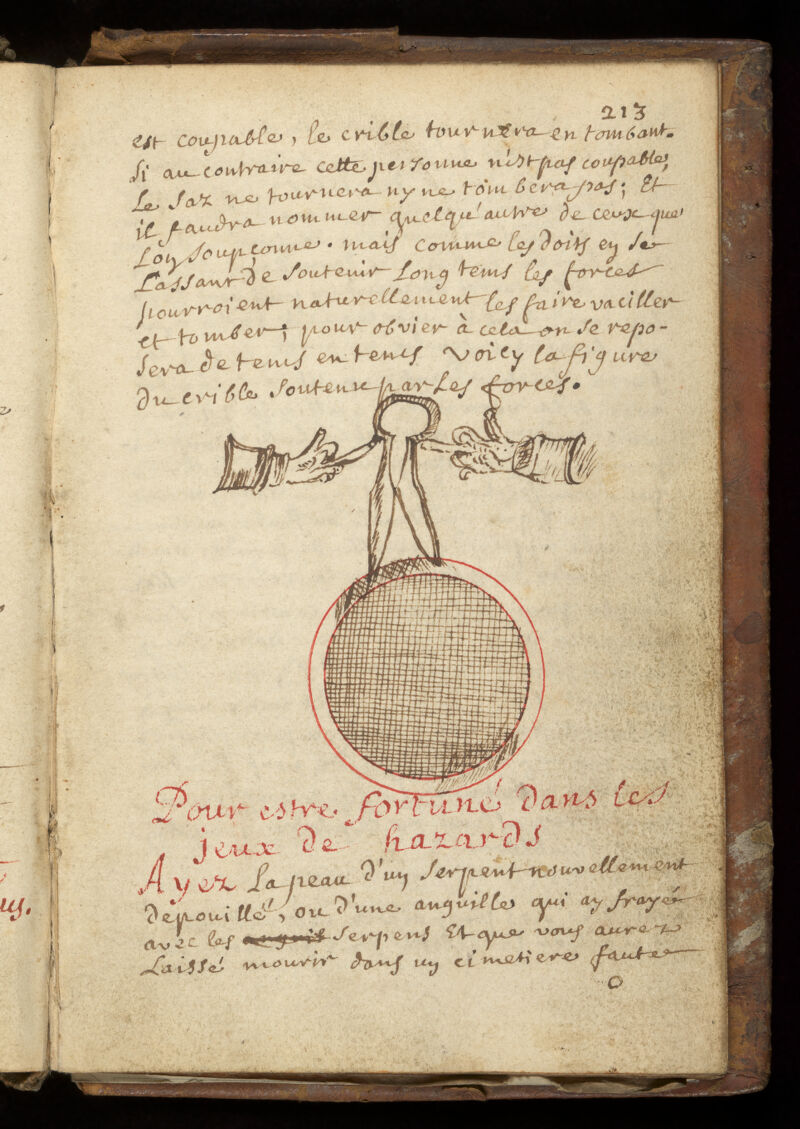 213
est coupable, le crible tournera en tombant.
si au contraire cette personne n'est pas coupable,
Le saz ne tournera ny ne tombera pas; Et
il faudra nommer quelqu'autre de ceux que
Lon soupçonne. mais comme les doits en se
Lassant de soutenir long tems les forces
pourroient naturellement les faire vaciller
et tomber; pour obvier à cela on se repo-
sera de tems en tems voicy la figure
du crible soutenu par Les forces.
Pour estre fortuné dans les
jeux de hazards
Ayez La peau d'un serpent nouvellement
depouillé, ou d'une anguille qui ay frayé
avec les serpens Et que vous aurez
Laissé mourir dans un cimetiere faute